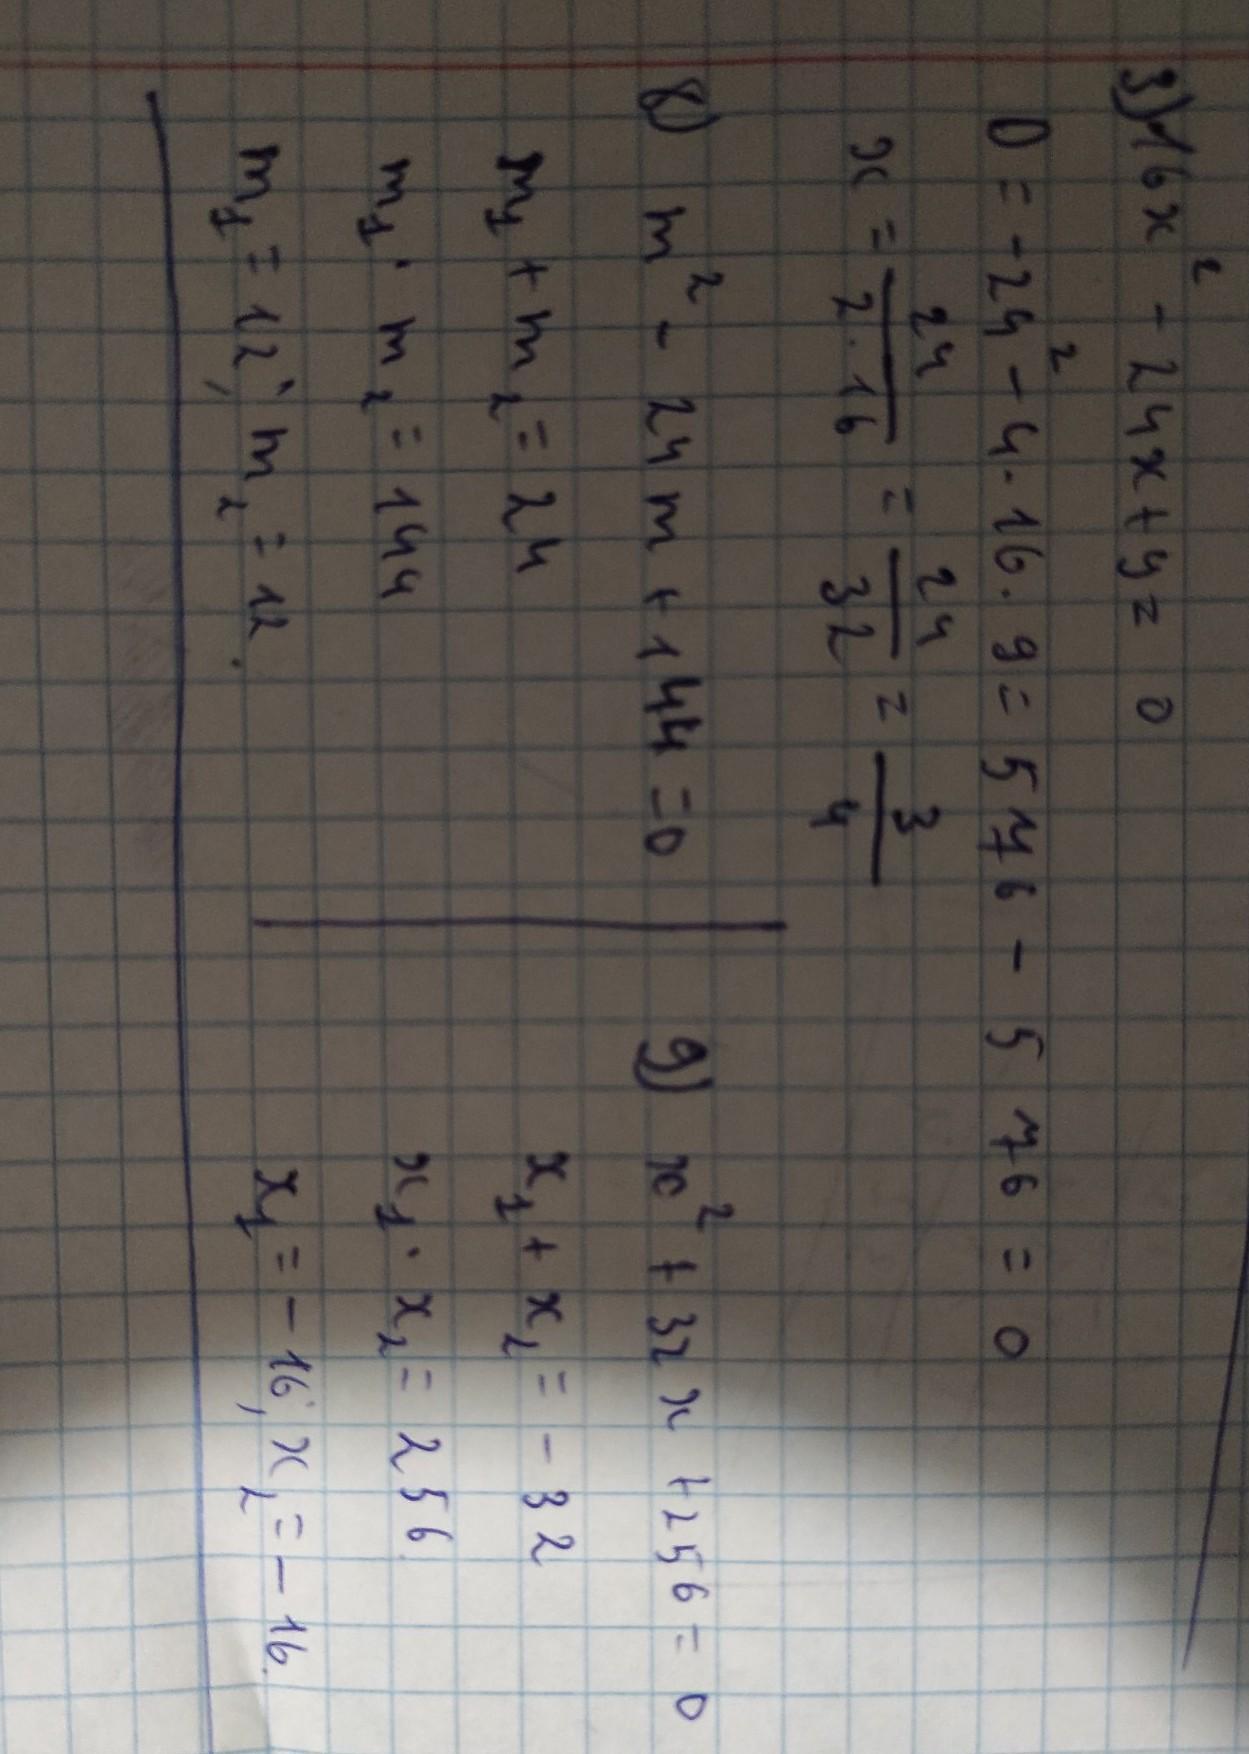 3) 16x² - 24x + 9 = 0
D = -24² - 4 · 16 · 9 = 576 - 576 = 0
x = 24/(2 · 16) = 24/32 = 3/4
8) m² - 24m + 144 = 0
m₁ + m₂ = 24
m₁ · m₂ = 144
m₁ = 12, m₂ = 12.
9) x² + 32x + 256 = 0
x₁ + x₂ = -32
x₁ · x₂ = 256.
x₁ = -16, x₂ = -16.